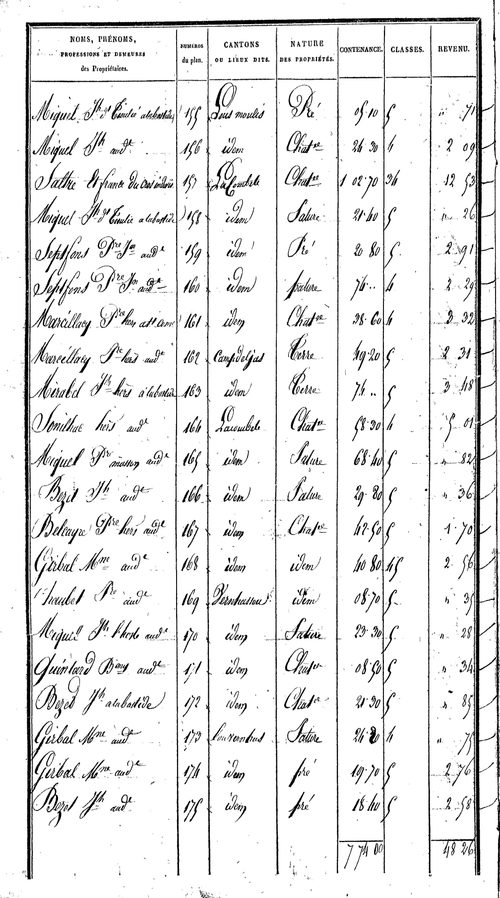 NOMS, PRÉNOMS, PROFESSIONS ET DEMEURES des Propriétaires. NUMEROS du plan. CANTONS OU LIEUX DITS. NATURE DES PROPRIÉTÉS. CONTENANCE. CLASSES. REVENU.
Miquel Jh 155 Lous moulis Pré 05 10 5 " 71
Miquel Jh aud 156 idem Chatre 24 30 4 2 09
157 La Combele Chatre 1 02 70 34 12 53
Miquel Jh 158 idem Pature 21 40 5 " 26
Septfons Pre Jn aud 159 idem Pré 20 80 5 2 91
Septfons Pre Jn aud 160 idem pature 76 .. 4 2 29
Marcillacy Pre hers 161 idem Chatre 38 60 4 3 32
Marcillacy Pre hers aud 162 Camp del Gas Terre 49 20 5 2 31
Mirabel Jh hers a labastide 163 idem Terre 74 .. 5 3 48
hers aud 164 Lacombele Chatre 58 30 4 5 01
Miquel Pre masson aud 165 idem Pature 68 40 5 " 82
Bezet Jh aud 166 idem Pature 29 80 5 " 36
Delcayre Pre hers aud 167 idem Chatre 42 50 5 1 70
Girbal Mme aud 168 idem idem 40 80 45 2 56
Pre aud 169 idem 08 70 5 " 35
Miquel Jh aud 170 idem Pature 23 30 5 " 28
Quintard aud 171 idem Chatre 08 50 5 " 34
Bezet Jh a labastide 172 idem Chatre 21 30 5 " 85
Girbal Mme aud 173 Pature 4 " 75
Girbal Mme aud 174 idem pré 19 70 5 2 76
Bezet Jh aud 175 idem pré 18 40 5 2 58
7 74 00 48 26